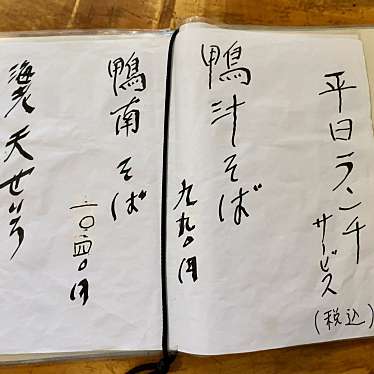 平日ランチ
サービス
(税込)
鴨汁そば
九九〇円
鴨南そば
一〇四〇円
海老天せいろ